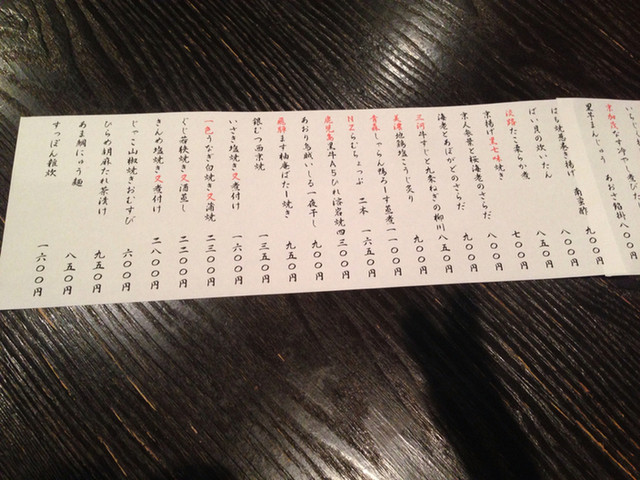 京加茂なす冷やし煮びた
あおさ餡掛 八〇〇円
里牛まんじゅう 南蛮酢 九〇〇円
はも焼葱巻き揚げ 八〇〇円
ばい貝の炊いたん 八五〇円
淡路たこ柔らか煮 七〇〇円
京揚げ黒七味焼き 五〇〇円
京人参葉と桜海老のさらだ 九〇〇円
海老とあぼがどのさらだ 八五〇円
三河牛すじと九条ねぎの柳川 九〇〇円
美濃地鶏塩こうじ炙り 一一〇〇円
青森しゃらん鴨ろーす蒸煮
NZらむちょっぷ 二本 一六五〇円
鹿児島黒牛A5ひれ溶岩焼 四三〇〇円
あおり烏賊いしる一夜干し 九〇〇円
飛騨ます柚庵ばたー焼き 九五〇円
銀むつ西京焼 一三五〇円
いさき塩焼き又煮付け 一六〇〇円
一色うなぎ白焼き又蒲焼 二三〇〇円
ぐじ若狭焼き又酒蒸し 二二〇〇円
きんめ塩焼き又煮付け 二八〇〇円
じゃこ山椒焼きおむすび 六〇〇円
ひらめ胡麻だれ茶漬け 九五〇円
あま鯛にゅう麺 八五〇円
すっぽん雑炊 一六〇〇円